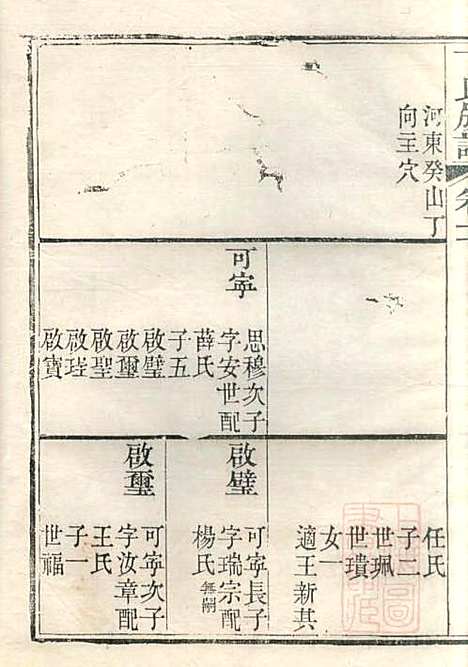 河東癸山丁
向主穴
可寧
思穆次子
字安世配
薛氏
子五
啟璧
啟璽
啟聖
啟瑆
啟寶
任氏
子二
世珮
世璝
女一
適王新其
啟璧
可寧長子
字瑞宗配
楊氏 無嗣
啟璽
可寧次子
字汝章配
王氏
子一
世福